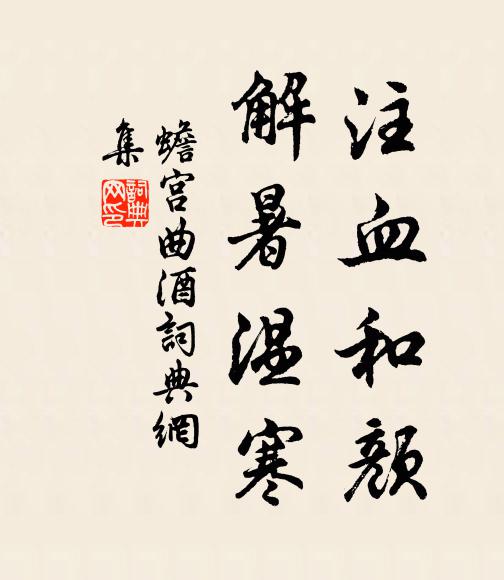 注血和颜
解暑温寒
蟾宫曲酒詞典網
集
詞典
网印